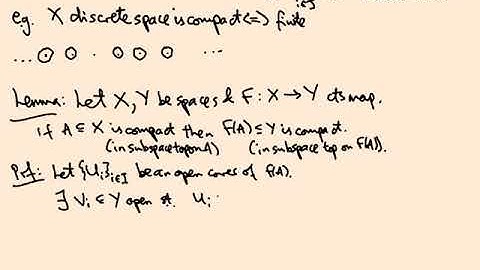 e.g. X discrete space is compact <=> finite
... ...
Lemma: Let X, Y be spaces & F: X → Y cts map.
if A ⊆ X is compact then F(A) ⊆ Y is compact.
(in subspace top on A) (in subspace top on F(A)).
Prf: Let {Ui}i∈I be an open cover of F(A).
∃ Vi ⊆ Y open st. Ui